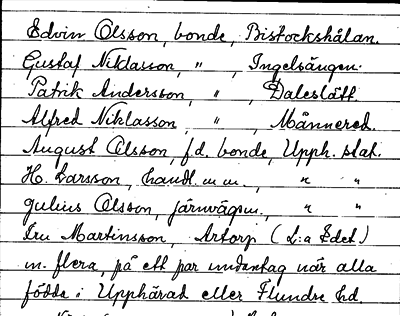 Edvin Olsson, bonde, Bistockshålan.
Gustaf Niklasson, " , Ingelsängen.
Patrik Andersson, " , Daleslätt.
Alfred Niklasson, " , Männered.
August Olsson, f.d. bonde, Upph. stat.
H. Larsson, handl. m m., " "
Julius Olsson, järnvägsm., " "
Iru Martinsson, Artorp (L:a Edet)
m. flera, på ett par undantag när alla
födda i Upphärad eller Flundre hd.